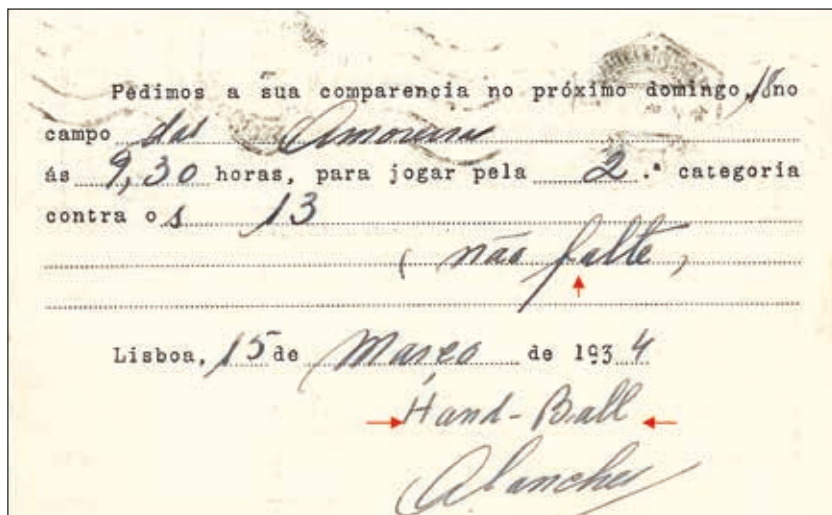 Pedimos a sua comparencia no próximo domingo, 18 no
campo das Amoreiras
ás 9,30 horas, para jogar pela 2.ª categoria
contra os 13
(não falte)
Lisboa, 15 de Março de 1934
Hand-Ball